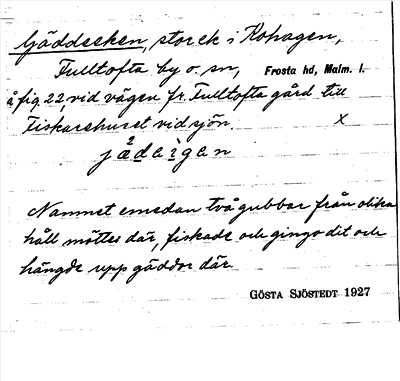 Gäddeeken, stor ek i Kohagen,
Fulltofta by o. sn, Frosta hd, Malm. l.
å fig. 22, vid vägen fr. Fulltofta gård till
Fiskarehuset vid sjön. X
Namnet emedan två gubbar från olika
håll möttes där, fiskade och gingo dit och
hängde upp gäddor där.
GÖSTA SJÖSTEDT 1927